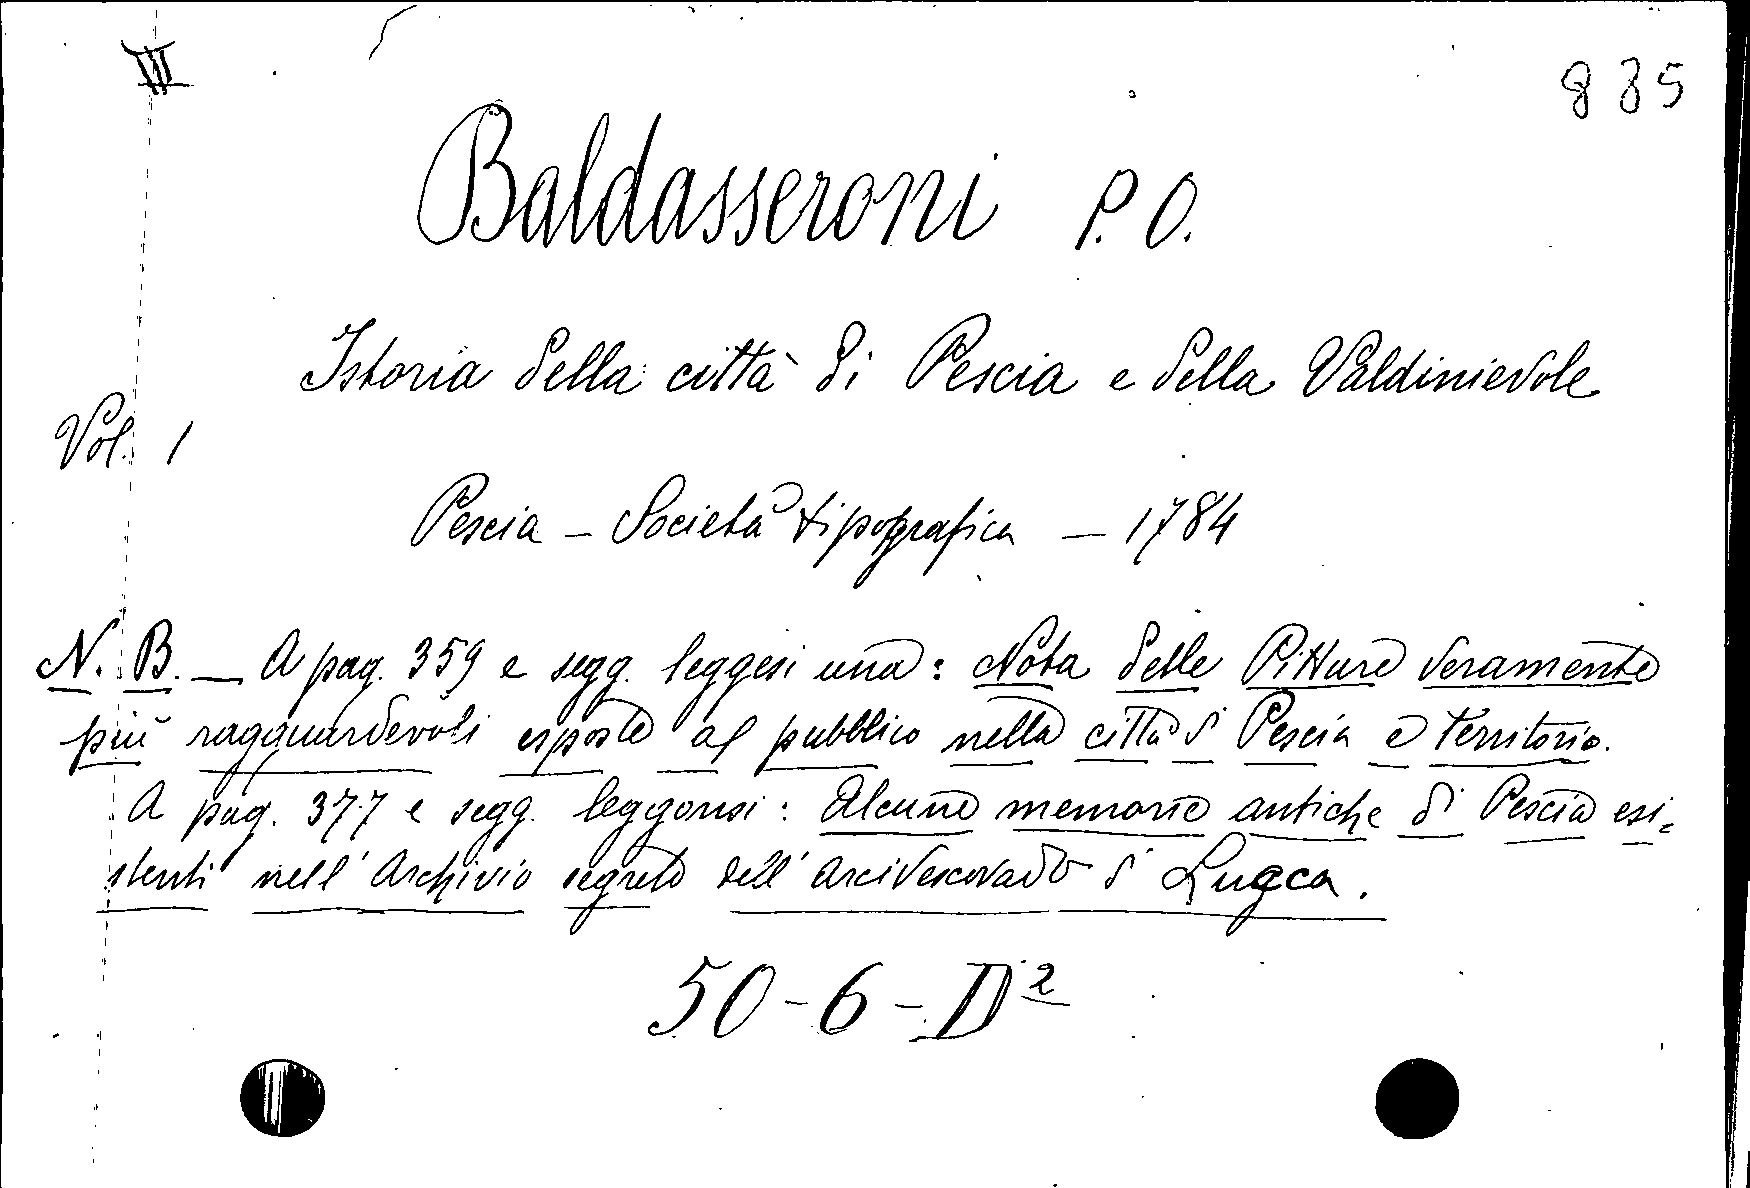 III
835
Baldasseroni P. O.
Istoria della città di Pescia e della Valdinievole
Vol. 1
Pescia – Società tipografica – 1784
N. B. – A pag. 359 e segg. leggesi una: Nota delle Pitture veramente
più ragguardevoli esposte al pubblico nella città di Pescia e territorio.
A pag. 377 e segg. leggonsi: Alcune memorie antiche di Pescia esi=
stenti nell'Archivio segreto dell'Arcivescovado di Lucca.
50-6-D²